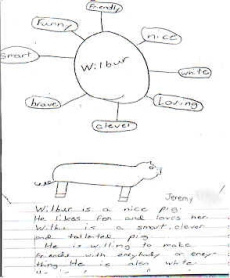 friendly
funny
nice
smart
Wilbur
white
brave
Loving
clever
Jeremy
Wilbur is a nice pig.
He likes Fern and loves her.
Wilbur is a smart, clever
and talented pig.
He is willing to make
friends with anybody or any-
thing. He is also white